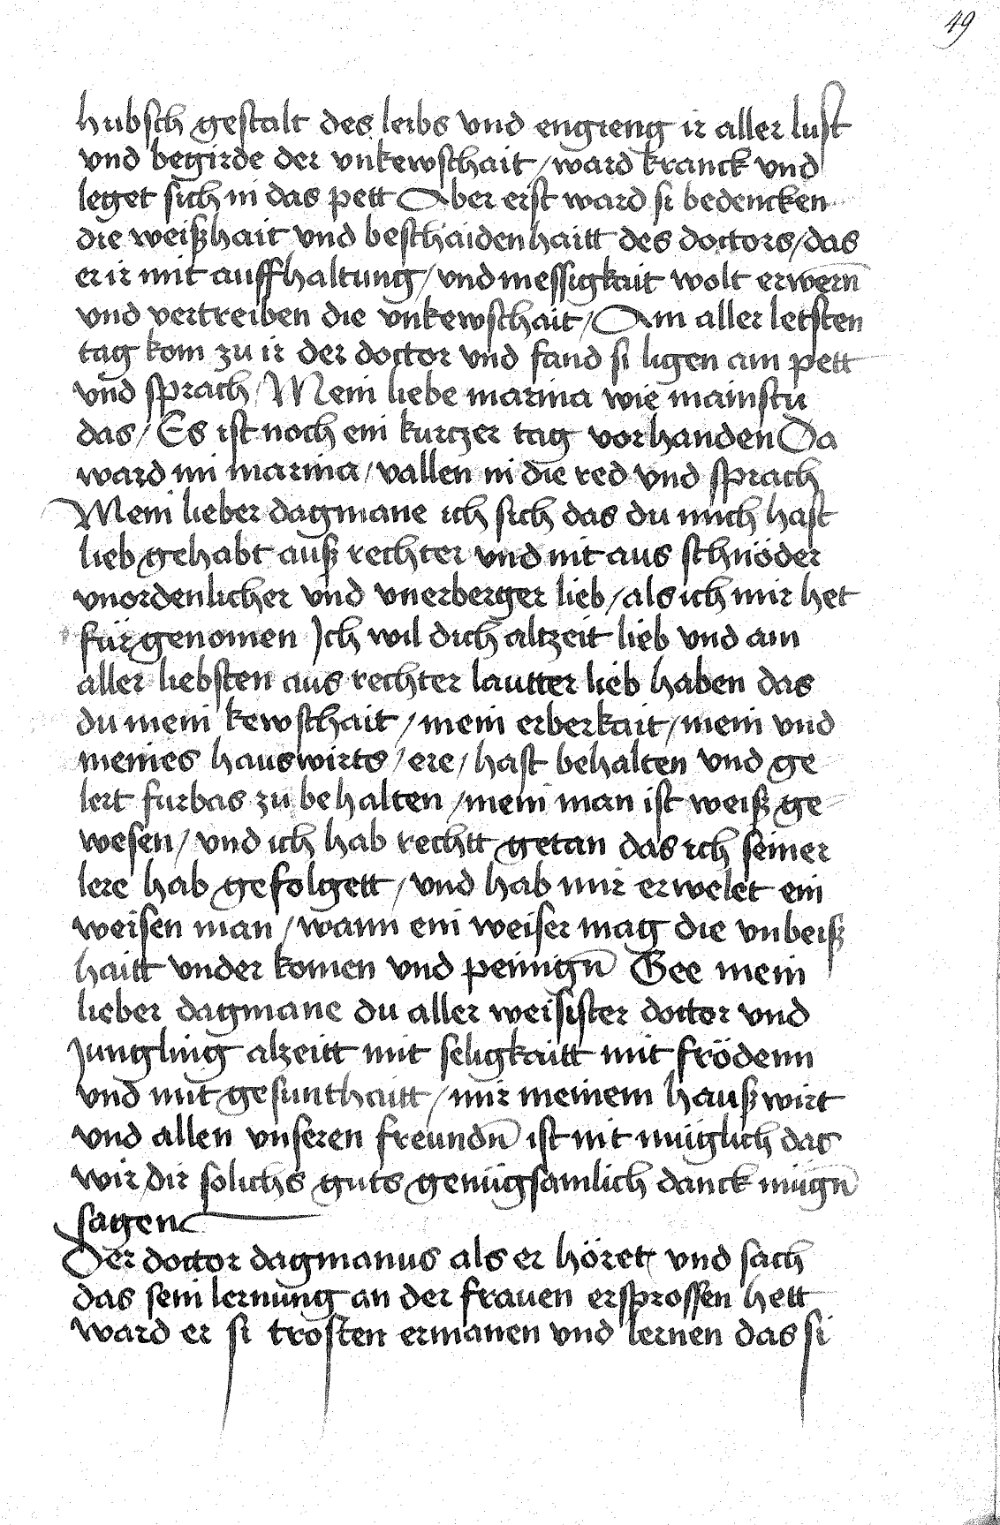 49
hubsch gestalt des leibs vnd engieng ir aller lust
vnd begirde der vnkewschait / ward kranck vnd
leget sich in das pett Aber erst ward si bedencken
die weißhait vnd beschaidenhaitt des doctors / das
er ir mit auffhaltung / vnd messigkait wolt erwern̄
vnd vertreiben die vnkewschait / Am aller letsten
tag kom zu ir der doctor vnd fand si ligen am pett
vnd sprach / Mein liebe marina wie mainstu
das / Es ist noch ein kurczer tag vorhanden Da
ward im marina / vallen in die red vnd sprach
Mein lieber dagmane ich sich das du mich hast
lieb gehabt auß rechter vnd nit aus schnöder
vnordenlicher vnd vnerberger lieb / als ich mir het
fürgenomen Ich wil dich altzeit lieb vnd am
aller liebsten aus rechter lautter lieb haben das
du mein kewschait / mein erberkait / mein vnd
meines hauswirts / ere / hast behalten vnd ge
lert furbas zu behalten / mein man ist weiß ge
wesen / vnd ich hab rechtt getan das ich seiner
lere hab gefolgett / vnd hab mir erwelet ein
weisen man / wann ein weiser mag die vnbeiß
haitt vnder komen vnd peinign̄ Gee mein
lieber dagmane du aller weisister doctor vnd
Jungling alzeitt mit seligkaitt mit frödenn
vnd mit gesunthaitt / mir meinem haußwirt
vnd allen vnseren freundn̄ ist nit müglich das
wir dir solichs guts genügsamlich danck mügn̄
sagen
Der doctor dagmanus als er höret vnd sach
das sein lernung an der frauen ersprossen hett
ward er si trosten ermanen vnd lernen das si